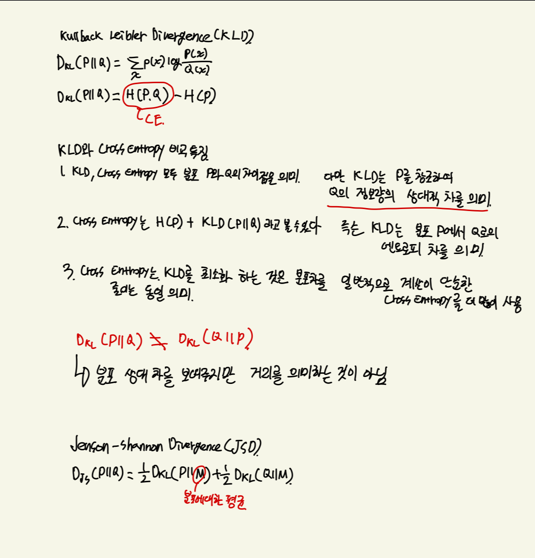 Kullback Leibler Divergence (KLD)
D_KL(P||Q) = Σ_x P(x) log P(x)/Q(x)
D_KL(P||Q) = H(P,Q) - H(P)
CE
KLD와 Cross Entropy 비교 특징
1. KLD, Cross Entropy 모두 분포 P와 Q의 차이점을 의미. 다만 KLD는 P를 참조하여
Q의 정보량의 상대적 차를 의미.
2. Cross Entropy는 H(P) + KLD(P||Q) 라고 볼 수 있다 즉 KLD는 분포 P에서 Q로의
엔트로피 차를 의미.
3. Cross Entropy는 KLD를 최소화 하는 것은 분포차를 일반적으로 계산이 단순한
동일 의미. Cross Entropy를 더 많이 사용
D_KL(P||Q) ≠ D_KL(Q||P)
↳ 분포 상대 차를 보여주지만 거리를 의미하는 것이 아님
Jenson-shannon Divergence (JSD)
D_JS(P||Q) = 1/2 D_KL(P||M) + 1/2 D_KL(Q||M)
분포에 대한 평균